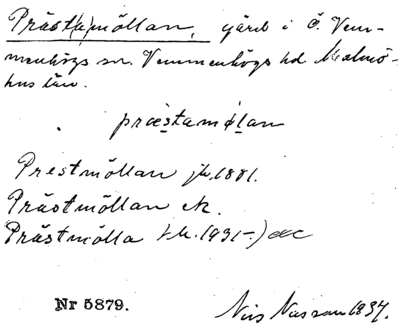 Präst(a)möllan, gård i Ö. Vem-
menhögs sn. Vemmenhögs hd. Malmö-
hus län.
præstamølan
Prestmöllan jb. 1881.
Prästmöllan ek.
Prästmölla 1931
Nr 5879. Nils 1937.